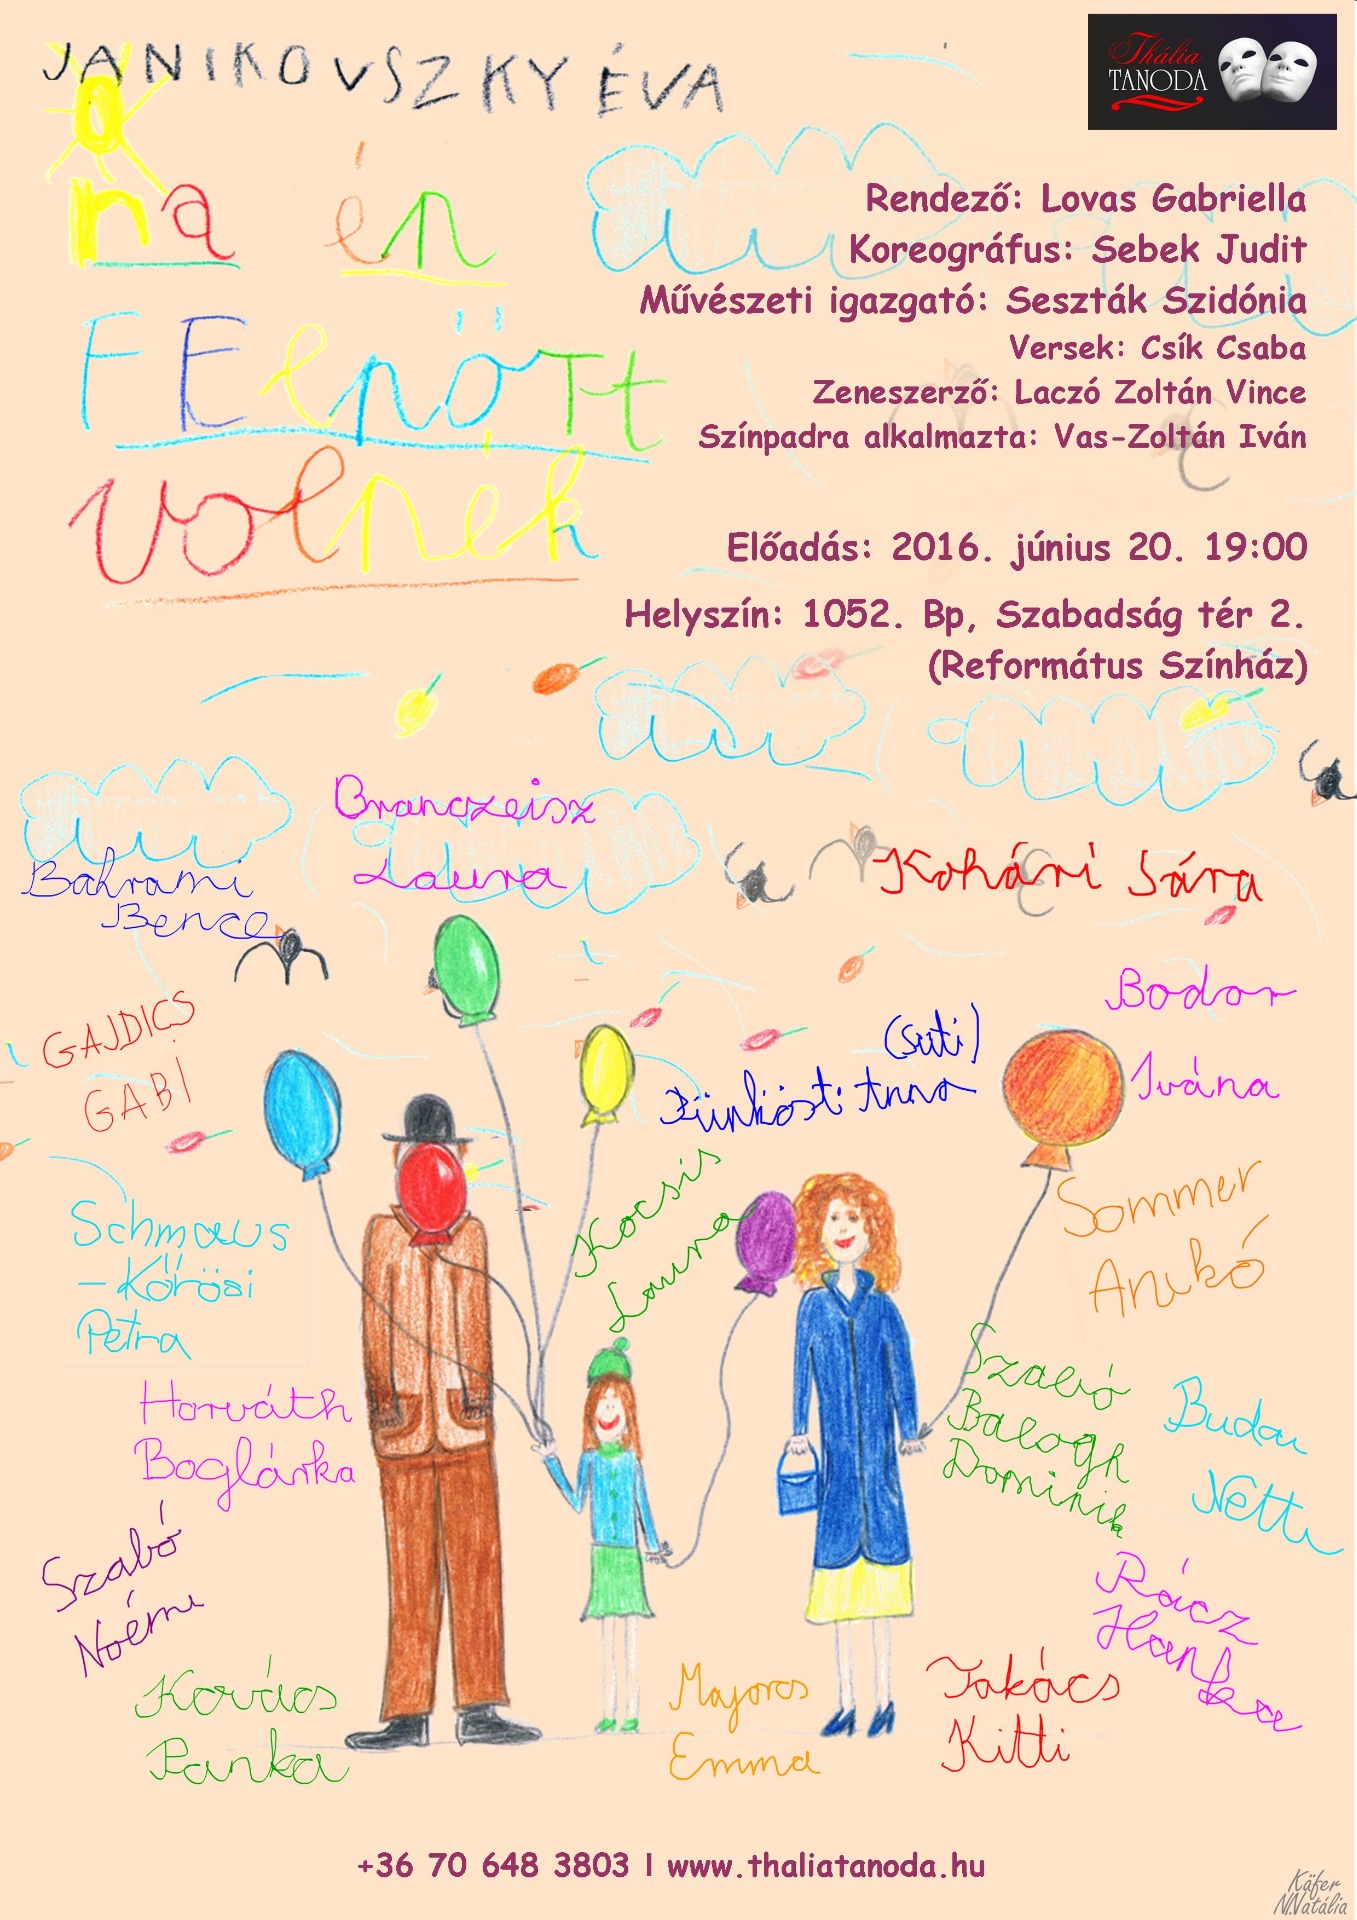 JANIKOVSZKY ÉVA
Thália
TANODA
Ha én
FElnőTt
volnék
Rendező: Lovas Gabriella
Koreográfus: Sebek Judit
Művészeti igazgató: Seszták Szidónia
Versek: Csík Csaba
Zeneszerző: Laczó Zoltán Vince
Színpadra alkalmazta: Vas-Zoltán Iván
Előadás: 2016. június 20. 19:00
Helyszín: 1052. Bp, Szabadság tér 2.
(Református Színház)
Branczeisz
Laura
Bahrami
Bence
Kohári Sára
Bodor
Ivána
GAJDICS
GABI
(Süti)
Pünkösti Anna
Kocsis
Laura
Schmaus
-Kőrösi
Petra
Sommer
Anikó
Horváth
Boglárka
Szabó
Balogh
Dominik
Budai
Netti
Szabó
Noémi
Rácz
Hanka
Kovács
Panka
Majoros
Emma
Takács
Kitti
+36 70 648 3803 I www.thaliatanoda.hu
Käfer
N.Natália